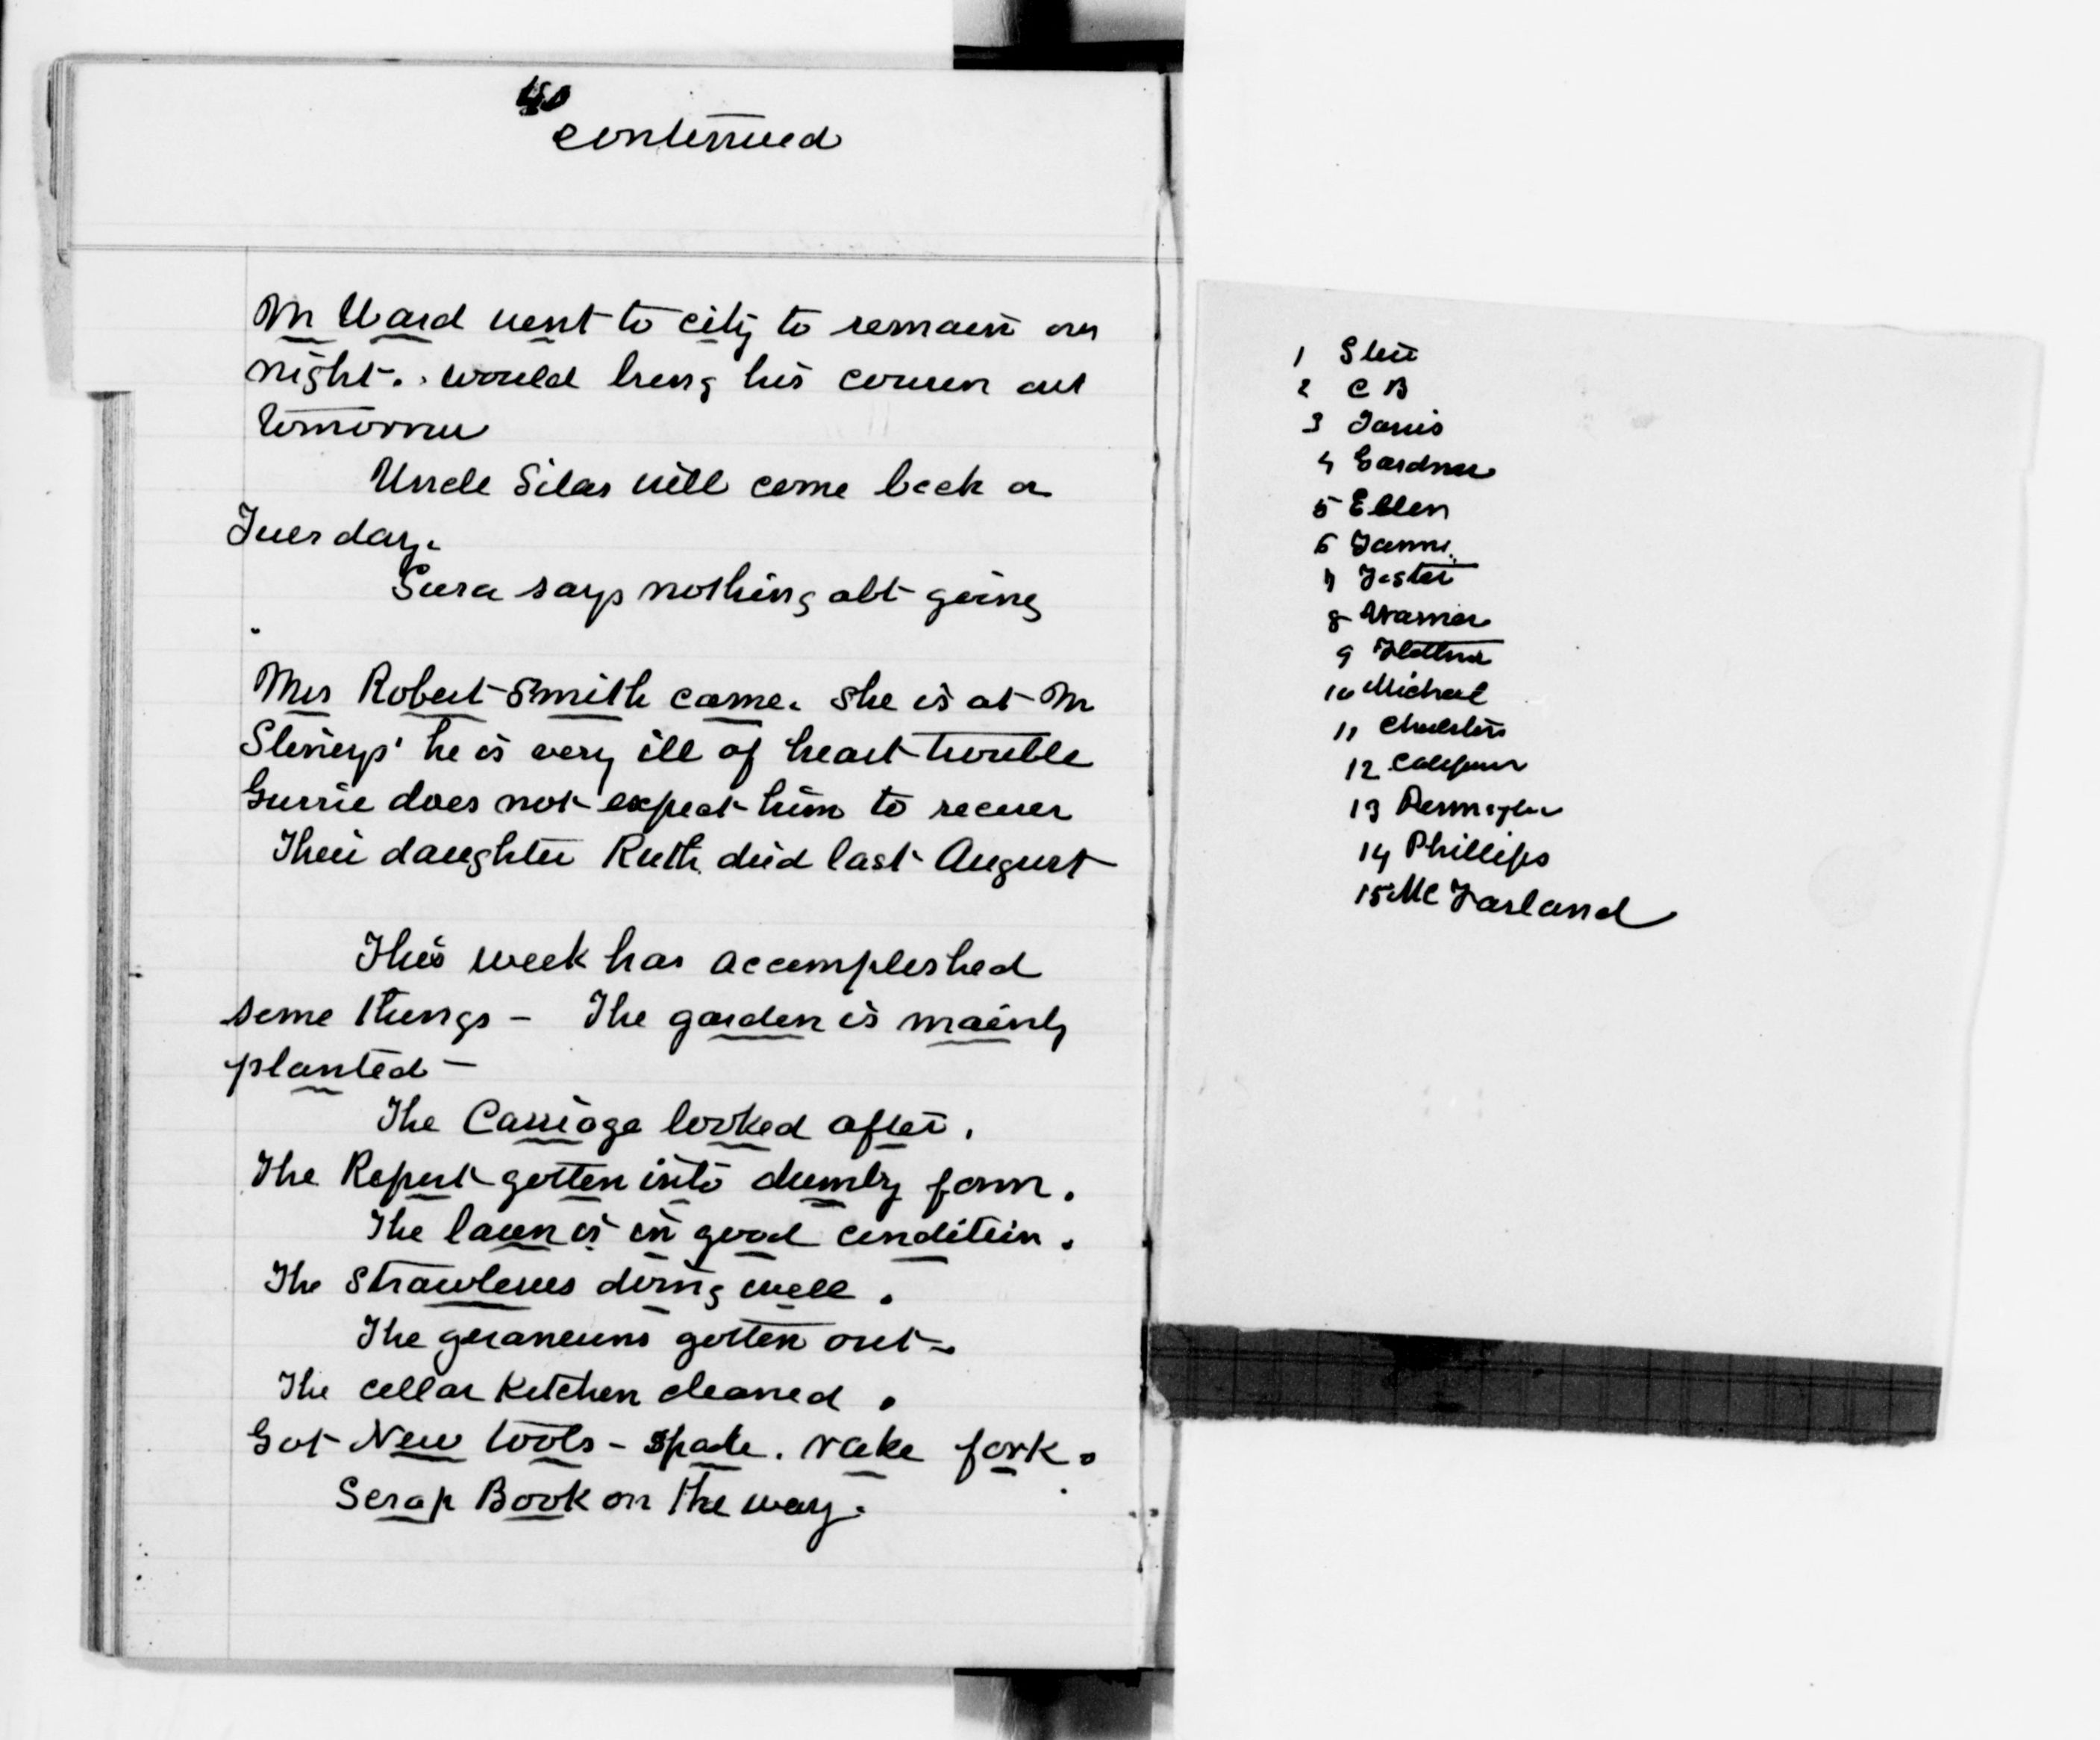 40
continued
Mr Ward went to city to remain over
night. would bring his cousin out
tomorrow
Uncle Silas will come back on
Tuesday.
says nothing abt going
Mrs Robert Smith came. She is at Mr
he is very ill of heart trouble
does not expect him to recover
Their daughter Ruth died last August
This week has accomplished
some things - The garden is mainly
planted -
The Carriage looked after.
The Report gotten into form.
The lawn is in good condition.
The Strawberries doing well.
The geraneums gotten out.
The cellar Kitchen cleaned.
Got New tools - spade. rake fork.
Scrap Book on the way.
1
2 C B
3
4 Gardner
5 Ellen
6
7
8 Warner
9
10 Michael
11
12
13
14 Phillips
15 McFarland